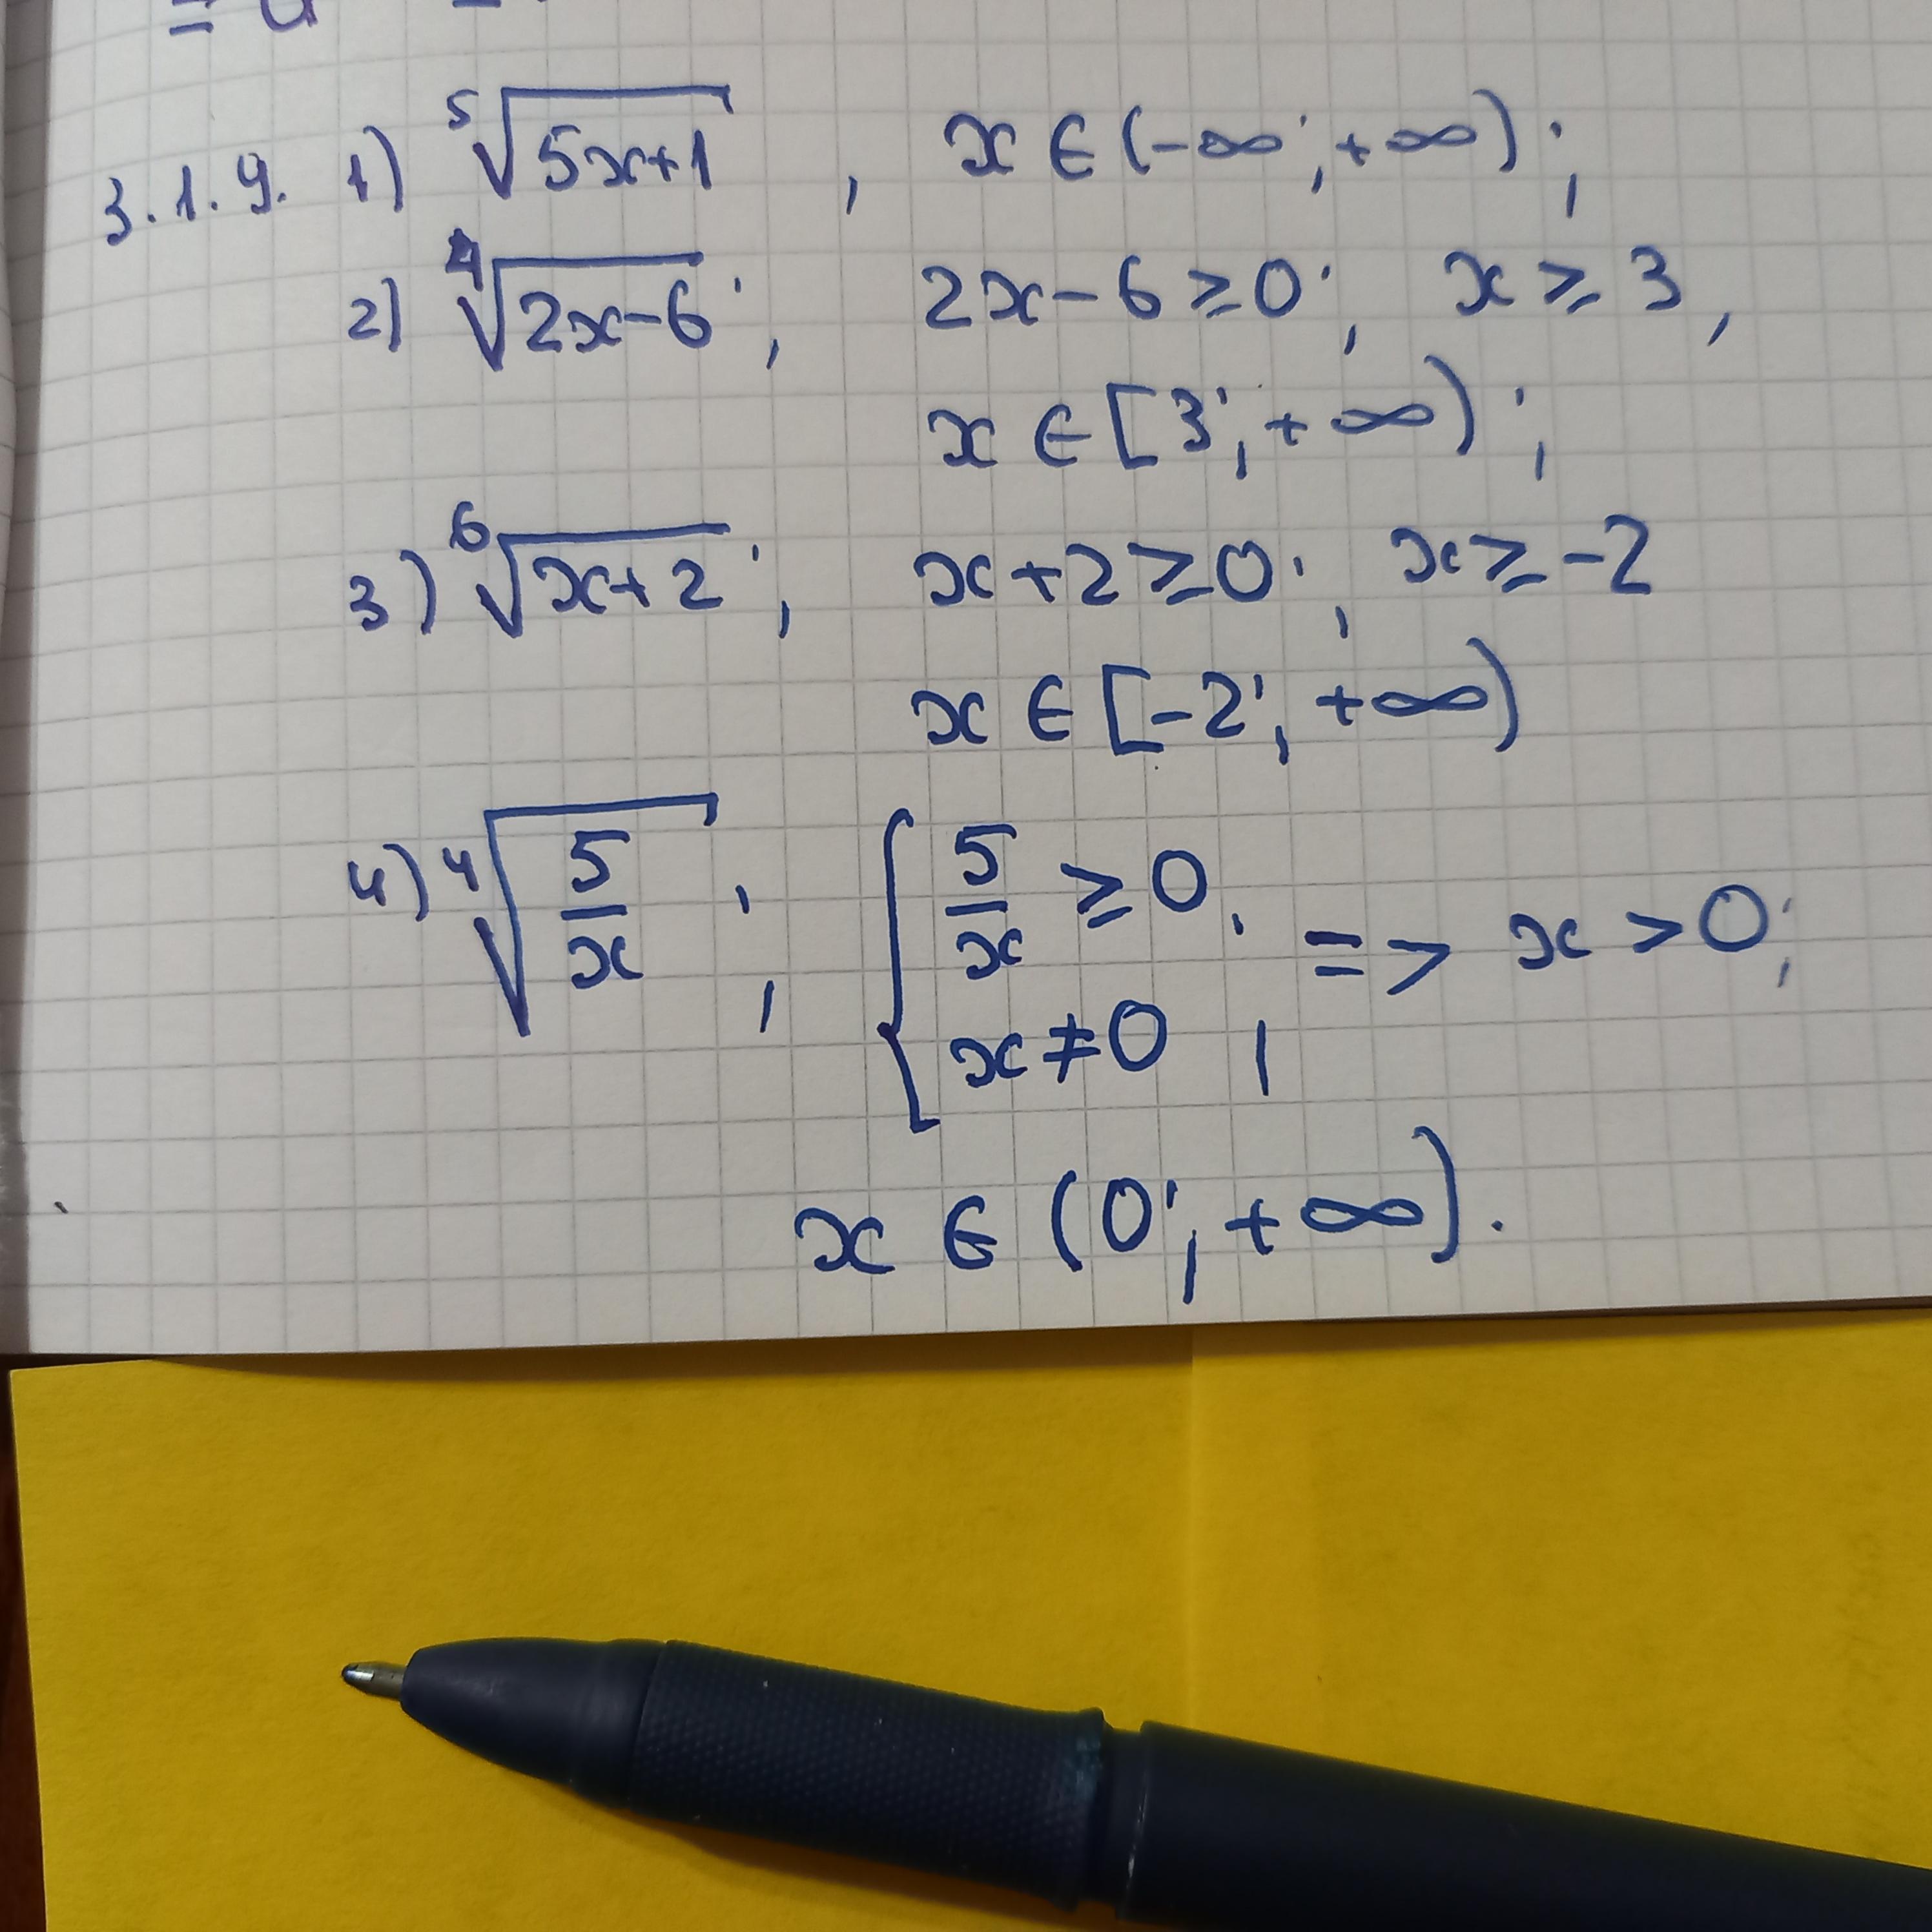 3.1.9. 1) ⁵√(5x+1) , x ∈ (-∞; +∞);
2) ⁴√(2x-6) ; 2x-6 ≥ 0; x ≥ 3,
x ∈ [3; +∞);
3) ⁶√(x+2) ; x+2 ≥ 0; x ≥ -2
x ∈ [-2; +∞)
4) ⁴√(5/x) ; { 5/x ≥ 0, x ≠ 0 ; => x > 0;
x ∈ (0; +∞).